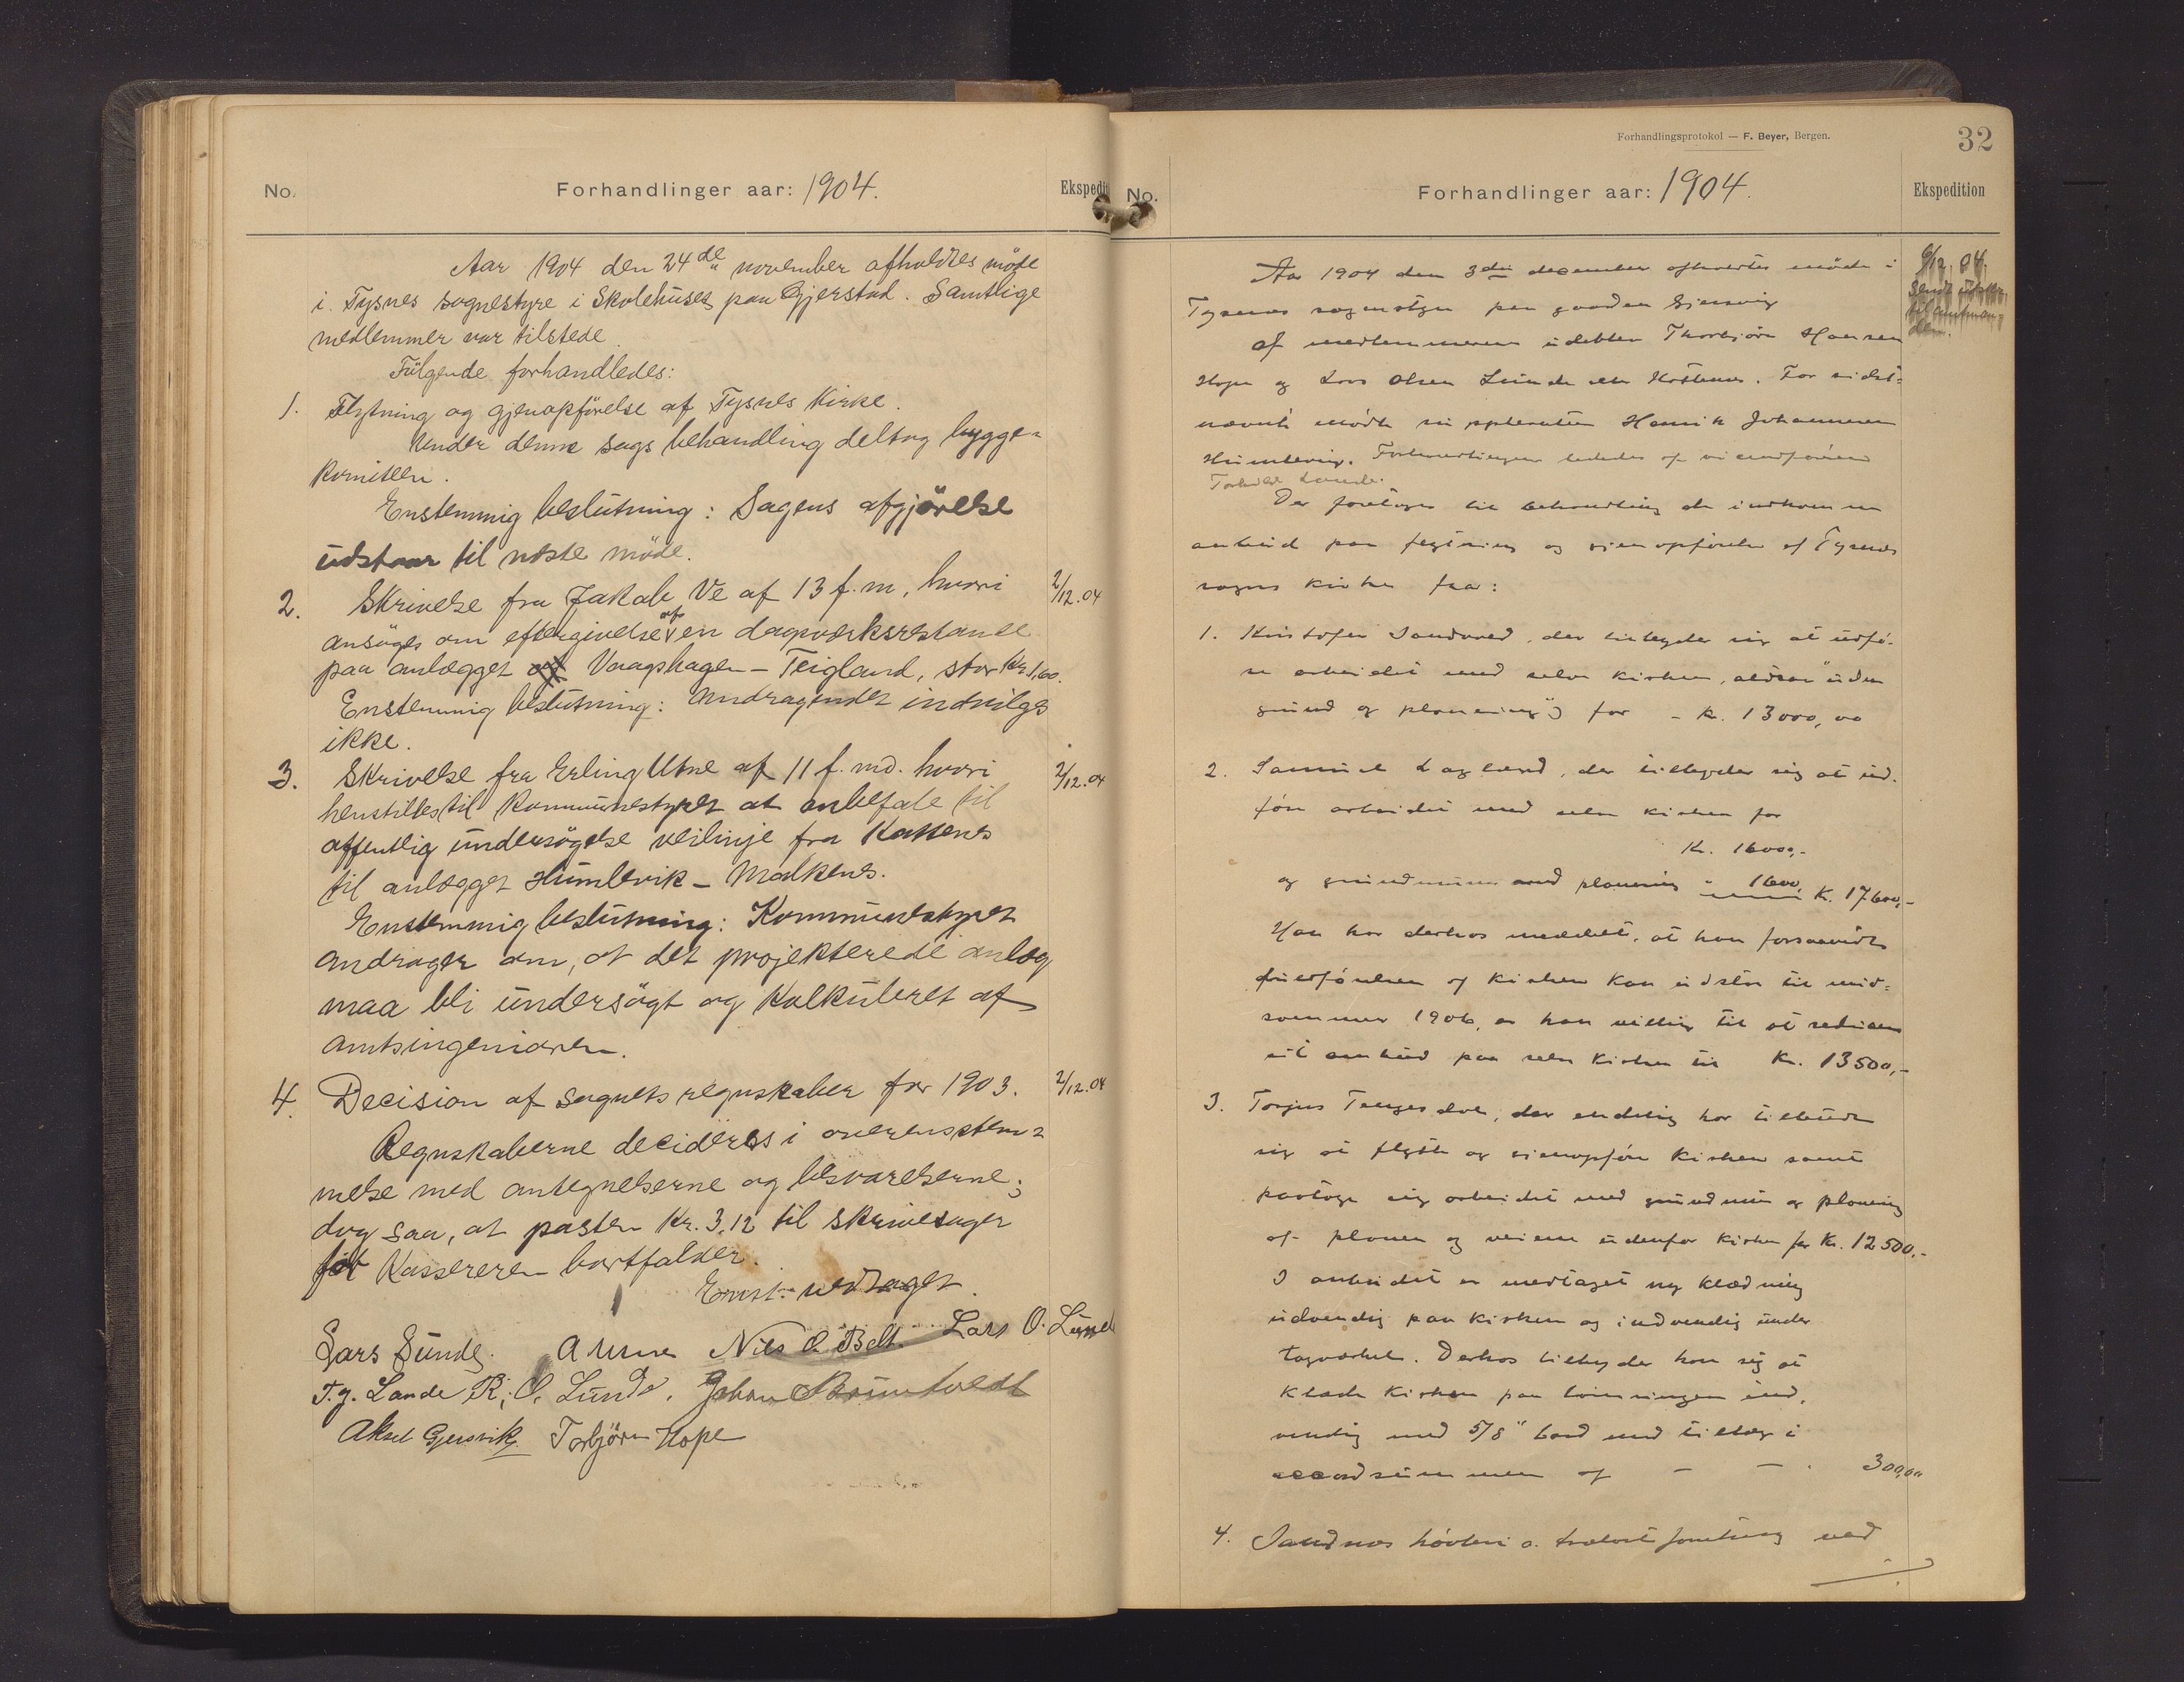 No. Forhandlinger aar: 1904. Ekspedit
Aar 1904 den 24de november afholdtes möde
i Tysnes sognestyre i Skolehuset paa Gjerstad. Samtlige
medlemmer var tilstede.
Fölgende forhandledes:
1. Flytning og gjenopförelse af Tysnes Kirke.
Under denne sags behandling deltog bygge-
komiteen.
Enstemmig beslutning: Sagens afgjörelse
udstaar til næste möde.
2. Skrivelse fra Jakob Ve af 13 f. m, hvori 2/12.04
ansöges om eftergivelse af en dagværksrestance
paa anlægget Vaagshagen - Teigland, stor Kr 1,60.
Enstemmig beslutning: Andragendet indvilges
ikke.
3. Skrivelse fra Erling Utne af 11 f. md. hvori 2/12.04
henstilles til Kommunestyret at anbefale til
offentlig undersögelse veilinje fra Kattenes
til anlægget Humlevik - Malkenes.
Enstemmig beslutning: Kommunestyret
andrager om, at det projekterede anlæg
maa bli undersögt og kalkuleret af
amtsingeniören.
4. Decision af sognets regnskaber for 1903. 2/12.04
Regnskaberne decideres i overensstem-
melse med antegnelserne og besvarelserne;
dog saa, at posten Kr. 3,12 til skrivesager
for Kassereren bortfalder.
Enst. vedtaget.
Lars Sunde. A Utne Nils O. Belt. Lars O. Lunde
T. J. Lande R. O. Lunde. Johan Bruntveldt
Aksel Gjersvik Torbjörn Hope
Forhandlingsprotokol — F. Beyer, Bergen.
32
No. Forhandlinger aar: 1904. Ekspedition
Aar 1904 den 3die december afholdtes möde i
Tysnes sognestyre paa gaarden Gjersvig
6/12. 04.
Sendt
til amtman-
den.
Af medlemmerne udebley Thorbjörn Hansen
Hope og Lars Olsen Lunde . For sidst-
nævnte mödte suppleanten Henrik Johannesen
Humlevig. Forhandlingen lededes af viceordföreren
Torbörn Lande.
Der foretoges til behandling de indkomne
anbud paa flytning og gjenopförelse af Tysnes
sogns kirke fra:
1. Kristofer Sandved, der tilbyder sig at udfö-
re arbeidet med selve kirken, altsaa "uden
grund og planering") for - Kr. 13000,00
2. Samuel Lagland, der tilbyder sig at ud-
före arbeidet med selve kirken for
Kr. 16000,-
og grundmuren med planering " 1600, Kr. 17600,-
Han har derhos meddelt, at han forsaavidt
fuldförelsen af kirken kan udstaa til mid-
sommer 1906, er han villig til at reducere
sit anbud paa selve kirken til Kr. 13500,-
3. Torjus Tengesdal, der endelig har tilbudt
sig at flytte og gjenopföre kirken samt
paatage sig arbeidet med grundmur og planering
af planen og veiene udenfor kirken for Kr. 12500,-
I anbudet er medtaget ny klædning
udvendig paa kirken og indvendig under
tagværket. Derhos tilbyder han sig at
klæde kirken paa tömringen ind-
vendig med 5/8" bord med tillæg i
accordsummen af - - . 300,00
4. Sandnes hövleri o. trælastforretning ved